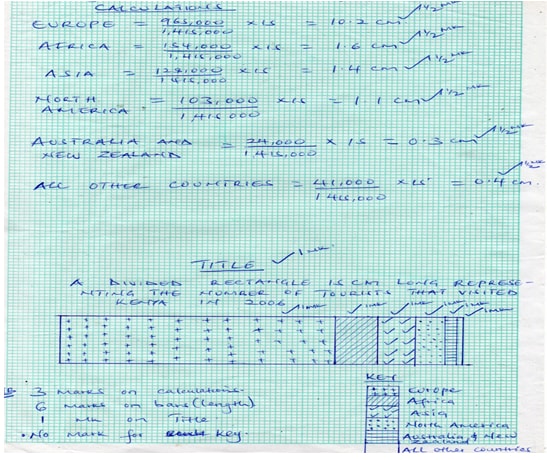 CALCULATIONS
EUROPE = 965,000/1,415,000 × 15 = 10.2 cm ✓ ½ mk
AFRICA = 154,000/1,415,000 × 15 = 1.6 cm ✓ ½ mk
ASIA = 128,000/1,415,000 × 15 = 1.4 cm ✓ ½ mk
NORTH AMERICA = 103,000/1,415,000 × 15 = 1.1 cm ✓ ½ mk
AUSTRALIA AND NEW ZEALAND = 24,000/1,415,000 × 15 = 0.3 cm ✓ ½ mk
ALL OTHER COUNTRIES = 41,000/1,415,000 × 15 = 0.4 cm. ✓ ½ mk
TITLE ✓ 1 mk
A DIVIDED RECTANGLE 15 CM LONG REPRESE-
NTING THE NUMBER OF TOURISTS THAT VISITED
KENYA IN 2006 ✓ 1mk ✓ 1mk ✓ 1mk ✓ 1mk ✓ 1mk ✓ 1mk
KEY
Europe
Africa
Asia
North America
Australia & New
Zealand
All other countries
3 marks on calculations.
6 marks on bars (length)
1 mk on Title
• No mark for key.